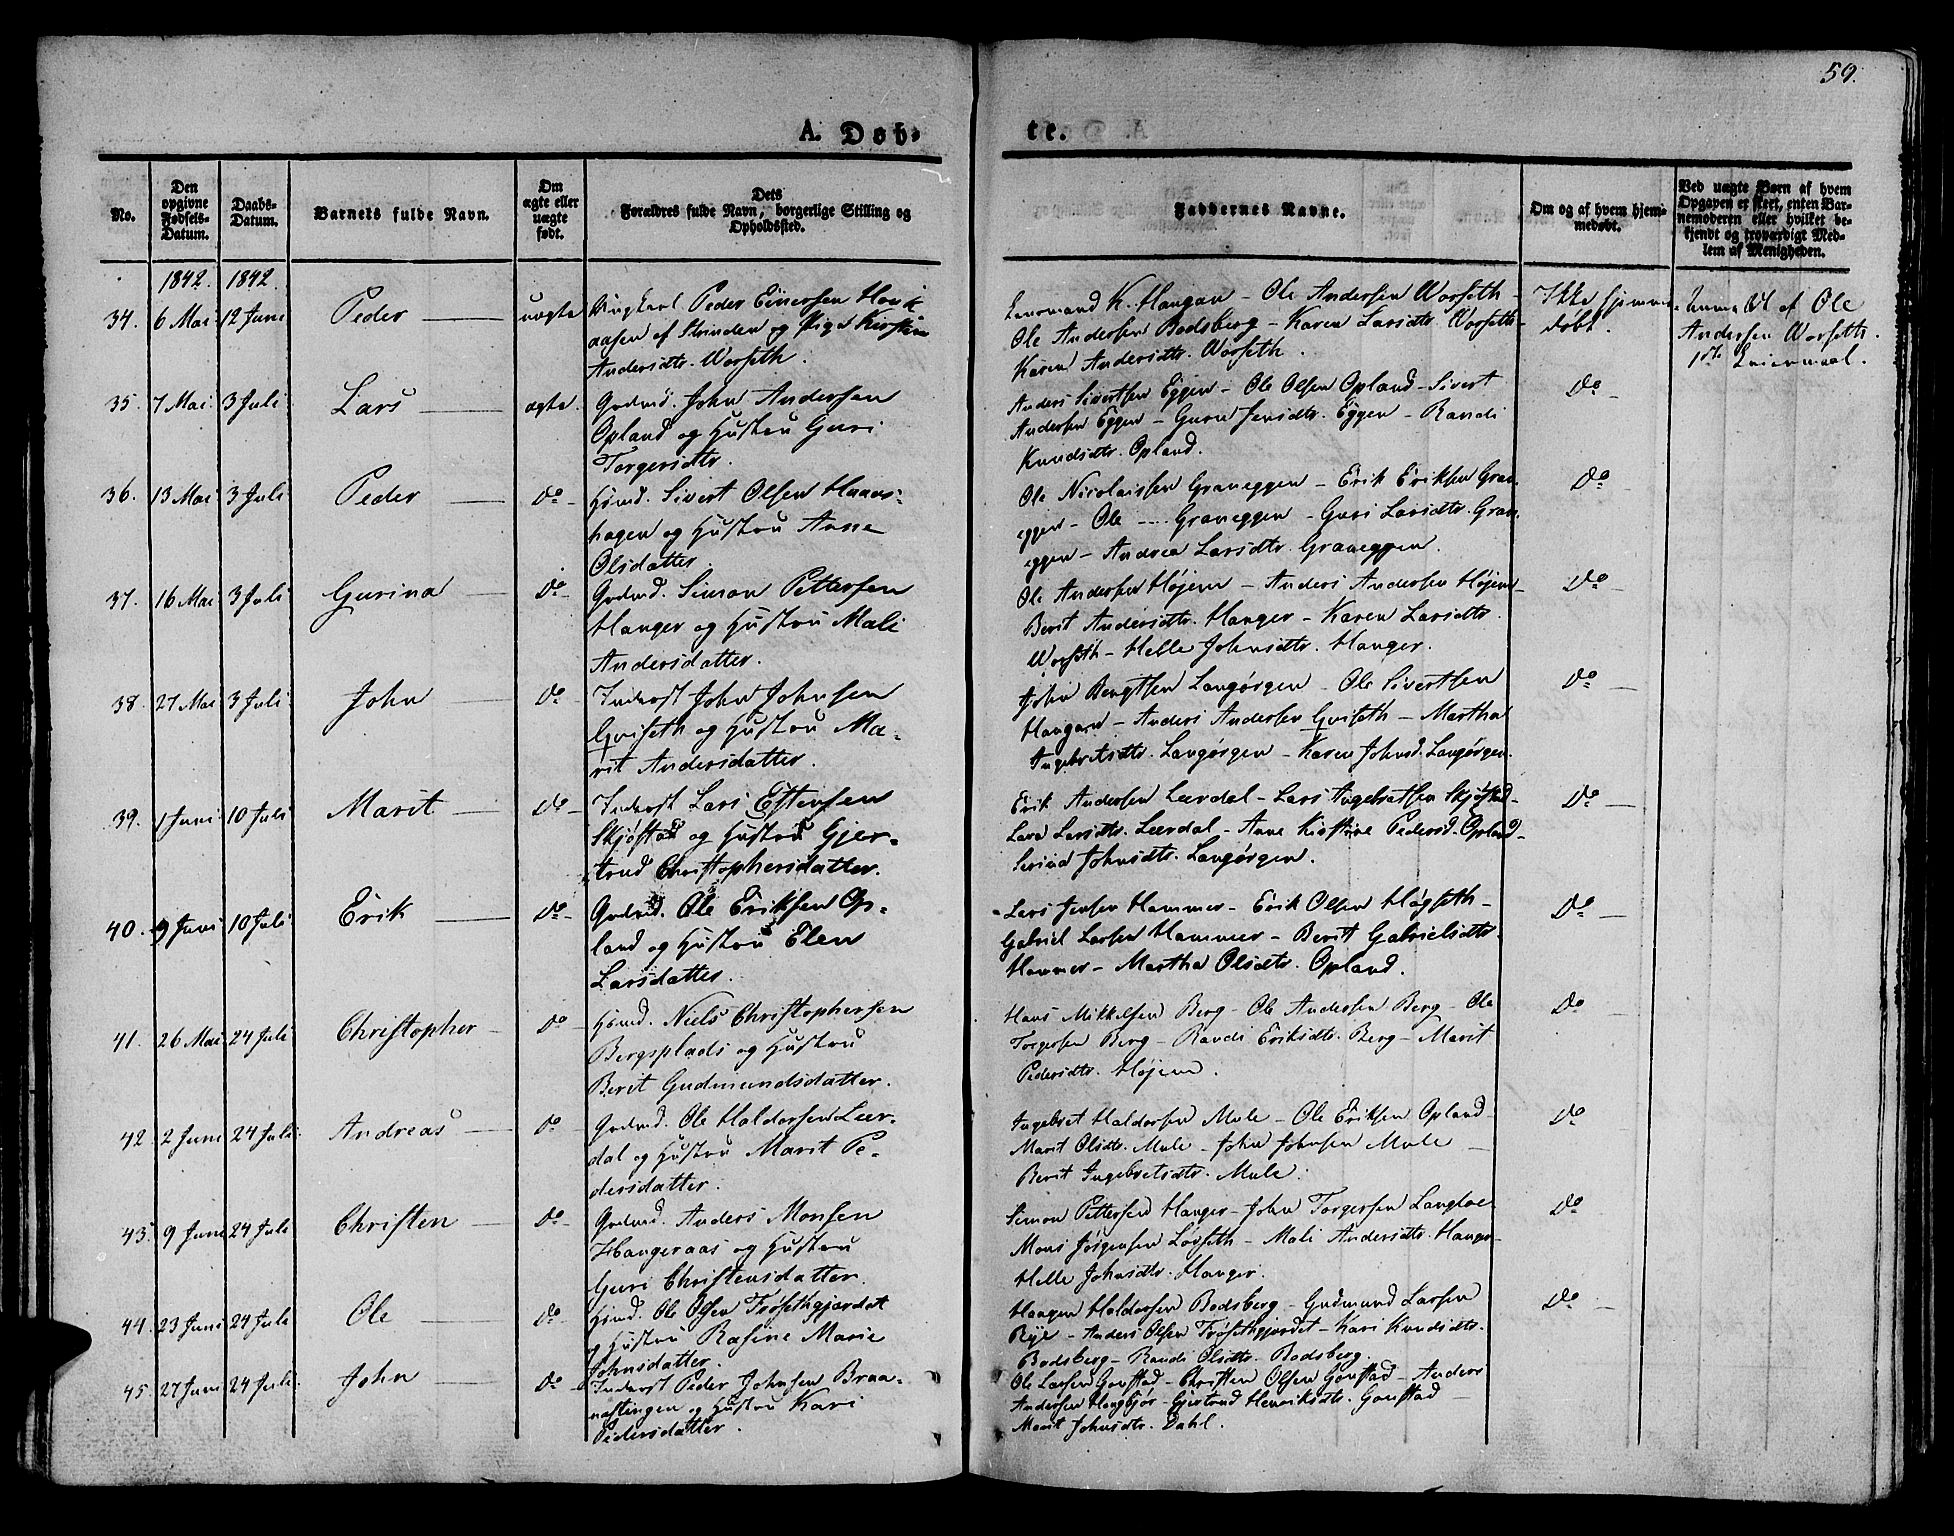 59.
A. Døb-
te.
No.
Den
opgivne
Fødsels-
Datum.
Daabs-
Datum.
Barnets fulde Navn.
Om
ægte eller
uægte
født.
Dets
Forældres fulde Navn, borgerlige Stilling og
Opholdssted.
Faddernes Navne.
Om og af hvem hjem-
medøbt.
Ved uægte Børn af hvem
Opgaven er skeet, enten Bar-
nemoderen eller hvilket be-
kjendt og troværdigt Med-
lem af Menigheden.
1842. 1842.
34. 6 Mai 12 Juni Peder uægte Ungkarl Peder Einersen Hovik
aasen af Strinden og Pige Kirstine
Andersdtr. Worseth.
Lensmand K. Hangan - Ole Andersen Worseth -
Ole Andersen Bodsberg - Karen Larsdtr. Worseth -
Karen Andersdtr. Worseth.
Ikke hjemme
døbt.
Anmeldt af Ole
Andersen Worseth.
1ste Leiermaal.
35. 7 Mai 3 Juli Lars ægte. Gadmd. John Andersen
Opland og Hustru Guri
Torgersdtr.
Anders Sivertsen Eggen - Ole Olsen Opland - Sivert
Andersen Eggen - Guru Jensdtr. Eggen - Randi
Knudsdtr. Opland.
Do -
36. 13 Mai 3 Juli Peder Do - Hsmd. Sivert Olsen Haans-
hagen og Hustru Anne
Olsdatter.
Ole Nicolaisen Graneggen - Erik Eriksen Gran
eggen - Ole --- Graneggen - Guri Larsdtr. Gran
eggen - Andrea Larsdtr. Graneggen.
Do -
37. 16 Mai 3 Juli Gurina Do - Gadmd. Simon Pettersen
Hanger og Hustru Mali
Andersdatter.
Ole Andersen Højem - Anders Andersen Højem -
Berit Andersdtr. Hanger - Karen Larsdtr.
Worseth - Helle Johnsdtr. Hanger.
Do -
38. 27 Mai 3 Juli John Do - Inderst John Johnsen
Qviseth og Hustru Ma-
rit Andersdatter.
John Bengtsen Langørgen - Ole Sivertsen
Hangan - Anders Andersen Qviseth - Martha
Ingebretsdtr. Langørgen - Karen Johnsd. Langørgen.
Do -
39. 1 Juni 10 Juli Marit Do - Inderst Lars Estensen
Skjøstad og Hustru Gjer-
trud Christophersdatter.
Erik Andersen Leerdal - Lars Ingebretsen Skjøstad -
Lava Larsdtr. Leerdal - Ane Kirstine Pedersd. Opland -
Serina Johnsdtr. Langørgen.
Do -
40. 9 Juni 10 Juli Erik Do - Gadmd. Ole Eriksen Op-
land og Hustru Elen
Larsdatter.
Lars Jensen Hammer - Erik Olsen Høgseth -
Gabriel Larsen Hammer - Berit Gabrielsdtr.
Hammer - Martha Olsdtr. Opland.
Do -
41. 26 Mai 24 Juli Christopher Do - Hsmd. Niels Christophersen
Bergsplads og Hustru
Berit Gudmundsdatter.
Hans Mikkelsen Berg - Ole Andersen Berg - Ole
Torgersen Berg - Randi Eriksdtr. Berg - Marit
Pedersdtr. Højem.
Do -
42. 2 Juni 24 Juli Andreas Do - Gadmd. Ole Haldorsen Leer-
dal og Hustru Marit Pe-
dersdatter.
Ingebret Haldorsen Mule - Ole Eriksen Opland -
Marit Olsdtr. Mule - John Johnsen Mule -
Berit Ingebretsdtr. Mule.
Do
43. 9 Juni 24 Juli Christen Do - Gadmd. Anders Monsen
Hangeraas og Hustru
Guri Christensdatter.
Simon Pettersen Hanger - John Torgersen Langloe
Mons Jørgensen Løvseth - Mali Andersdtr. Hanger
Helle Johnsdtr. Hanger.
Do
44. 23 Juni 24 Juli Ole Do - Hsmd. Ole Olsen Trøsethgjærdet
og Hustru Rasine Marie
Johnsdatter.
Haagen Haldorsen Bodsberg - Gudmund Larsen
Rye - Anders Olsen Trøsethgjærdet - Kari Knudsdtr.
Bodsberg - Randi Olsdtr. Bodsberg.
Do -
45. 27 Juni 24 Juli John Do - Inderst Peder Johnsen Braa-
nastingen og Hustru Kari
Pedersdatter.
Ole Larsen Gonstad - Christen Olsen Gonstad - Anders
Andersen Haugbjør - Gjertrud Henriksdtr. Gonstad -
Marit Johnsdtr. Dahl.